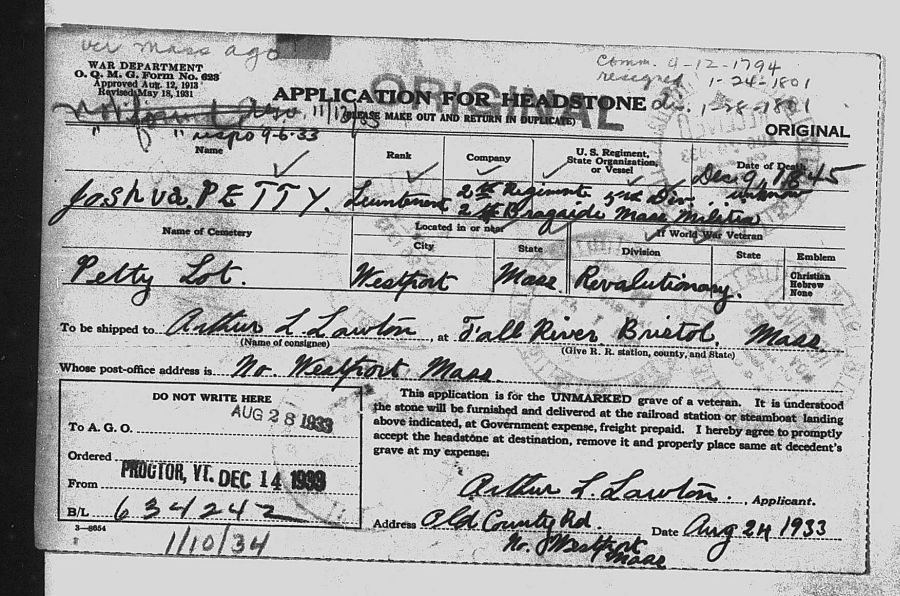 ver mass ago
WAR DEPARTMENT
O. Q. M. G. Form No. 623
Approved Aug. 12, 1913
Revised May 18, 1931
Comm. 4-12-1794
resigned 1-24-1801
dis. 1-28-1801
ORIGINAL
APPLICATION FOR HEADSTONE
(PLEASE MAKE OUT AND RETURN IN DUPLICATE)
ORIGINAL
11/17/33
" " respo 9-6-33
Name
Rank
Company
U. S. Regiment, State Organization, or Vessel
Date of Death
Joshua. PETTY.
Leuntenent
2nd Regiment 5nd Div.
2nd Bragaide Mass Militia
Dec 9, 1845
unknown
Name of Cemetery
Located in or near
City
State
If World War Veteran
Division
State
Emblem
Petty Lot.
Westport
Mass
Revalutionary.
Christian
Hebrew
None
To be shipped to Arthur L. Lawton, at Fall River Bristol, Mass
(Name of consignee)
(Give R. R. station, county, and State)
Whose post-office address is No. Westport Mass.
DO NOT WRITE HERE
AUG 28 1933
To A. G. O.
Ordered
From PROCTOR, VT. DEC 14 1933
B/L 634242
3—6654
1/10/34
This application is for the UNMARKED grave of a veteran. It is understood
the stone will be furnished and delivered at the railroad station or steamboat landing
above indicated, at Government expense, freight prepaid. I hereby agree to promptly
accept the headstone at destination, remove it and properly place same at decedent's
grave at my expense.
Arthur L. Lawton., Applicant.
Address Old County Rd. Date Aug 24 1933
No. Westport
Mass